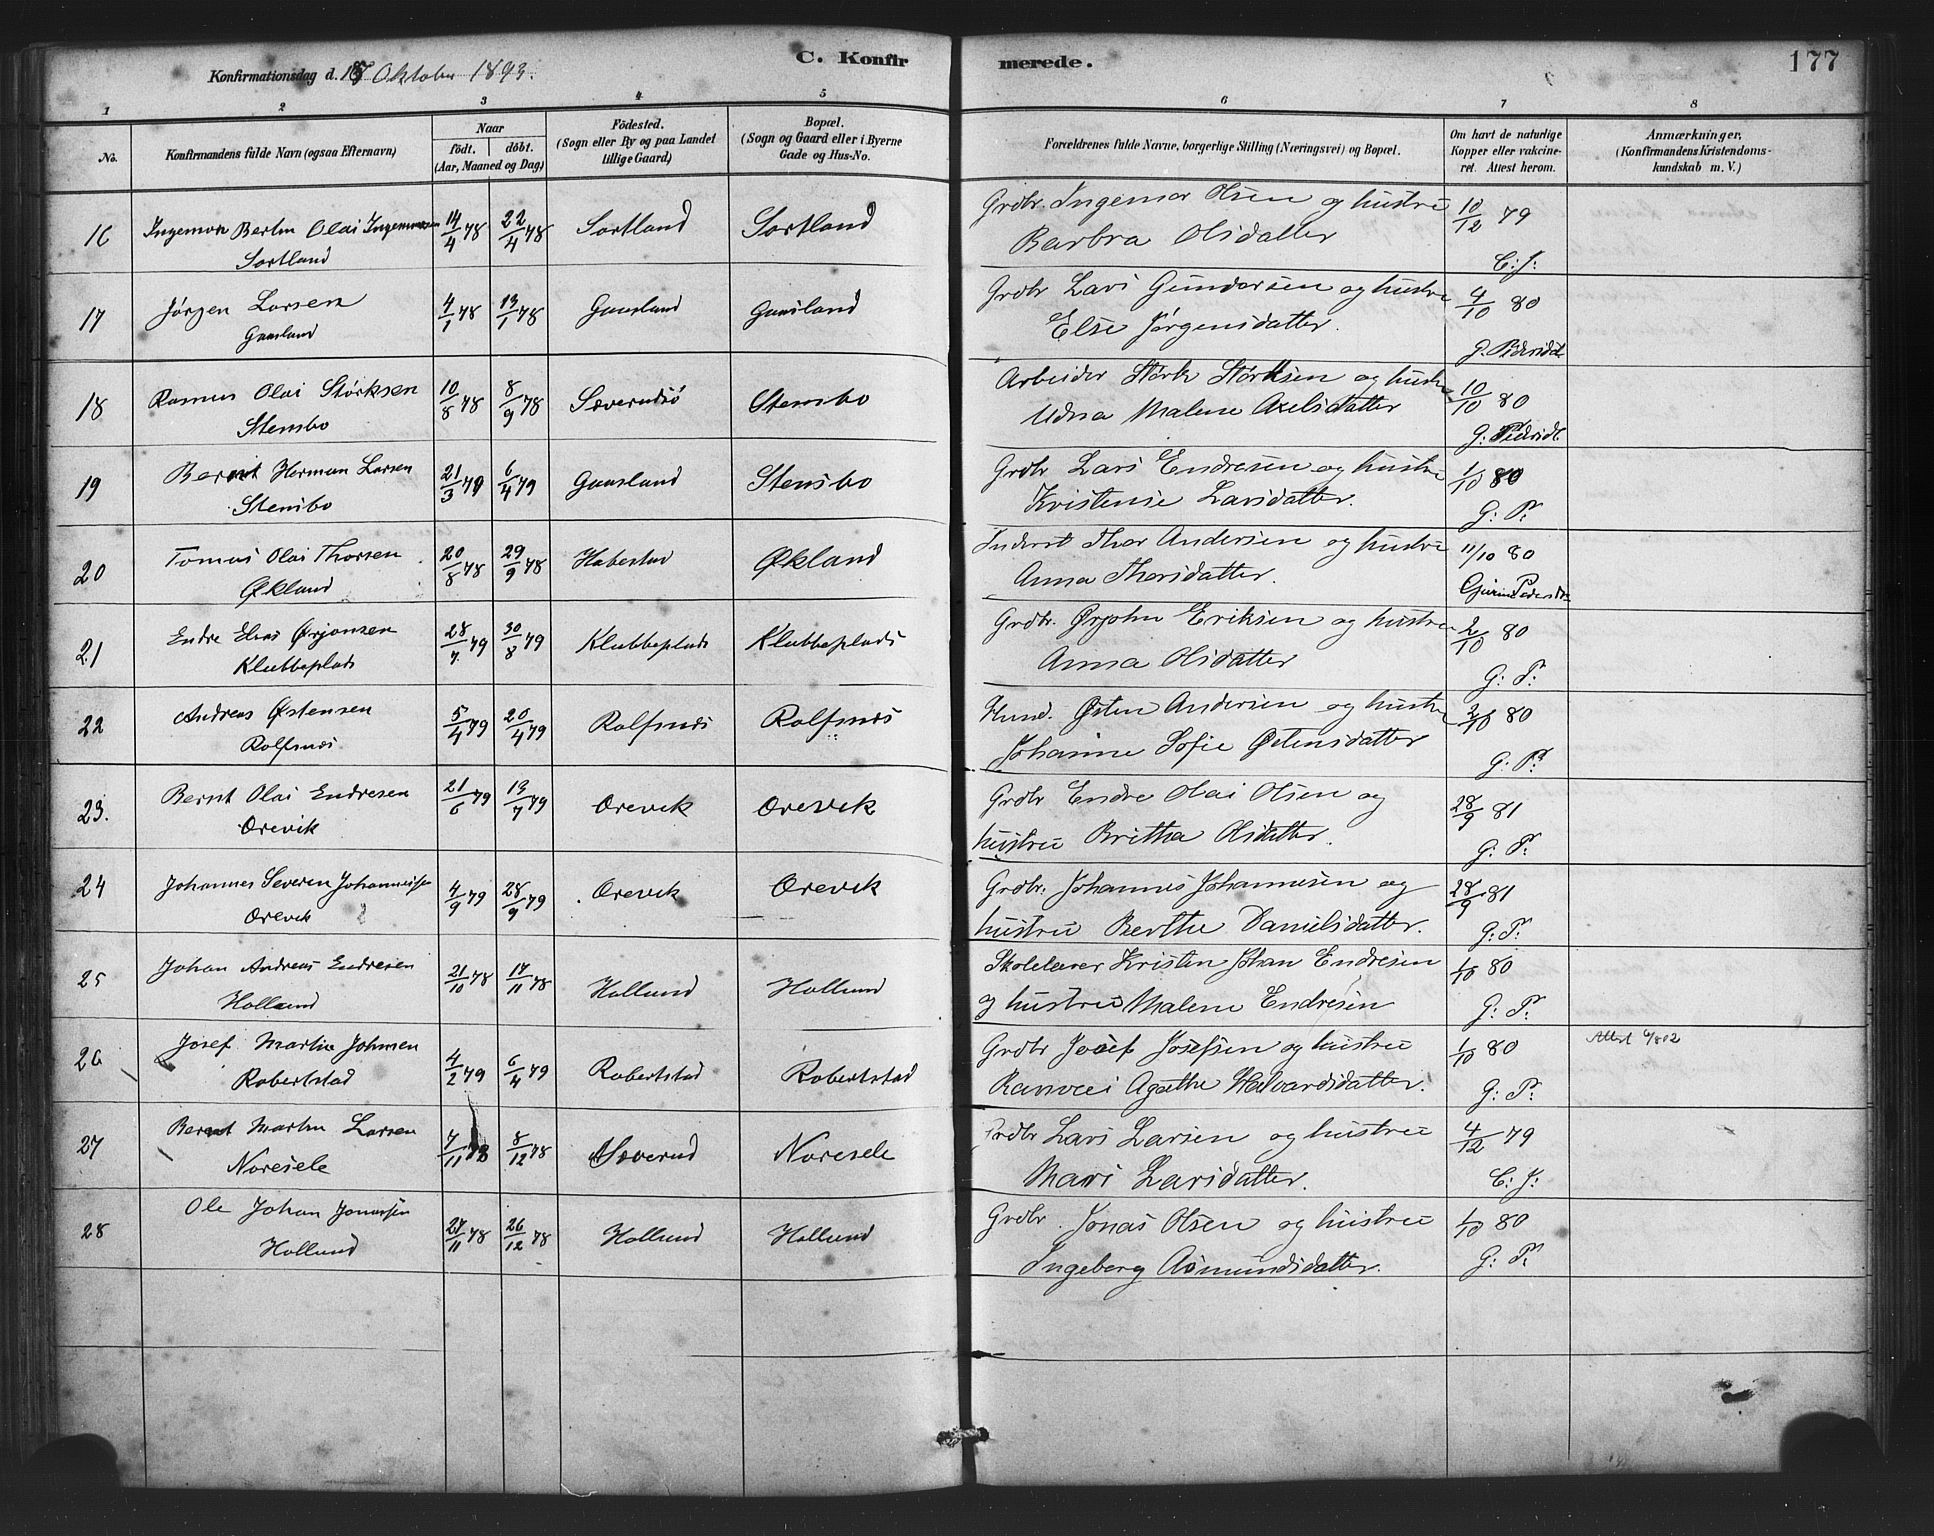 C. Konfirmerede.
177
Konfirmationsdag d. Oktober 1893.
1 2 3 4 5 6 7 8
No.
Konfirmandens fulde Navn (ogsaa Efternavn)
Naar
födt. döbt.
(Aar, Maaned og Dag)
Födested.
(Sogn eller By og paa Landet
tillige Gaard)
Bopæl.
(Sogn og Gaard eller i Byerne
Gade og Hus-No.
Forældrenes fulde Navne, borgerlige Stilling (Næringsvei) og Bopæl.
Om havt de naturlige
Kopper eller vakcine-
ret. Attest herom.
Anmærkninger,
(Konfirmandens Kristendoms-
kundskab m. V.)
16 Ingemon Bertin Olai Ingemonsen 14/4 78 22/4 78 Sortland Sortland Grdbr. Ingemor Olsen og hustru 10/12 79
Sortland Barbra Olsdatter C: J:
17 Jørgen Larsen 4/1 78 13/1 78 Gaasland Gaasland Grdbr Lars Gundersen og hustru 4/10 80
Gaasland Else Jørgensdatter. G. Pedersdt.
18 Rasmus Olai Størksen 10/8 78 8/9 78 Sæverudsö Stensbo Arbeider Størk Størksen og hustru 10/10 80
Stensbo Udna Malene Axelsdatter G: Pedersdt.
19 Bernt Herman Larsen 21/3 79 6/4 79 Gaasland Stensbo Grdbr Lars Endresen og hustru 1/10 80
Stensbo Kristense Larsdatter. G: P:
20 Tomas Olai Thorsen 20/8 78 29/9 78 Habestad Økland Inderst Thor Andersen og hustru 11/10 80
Økland Anna Thorsdatter. Gjurina Pedersdtr
21 Endre Elias Ørjansen 28/7 79 30/8 79 Klubbeplads Klubbeplads Grdbr. Ørjohn Eriksen og hustru 2/10 80
Klubbeplads Anna Olsdatter G: P:
22 Andreas Østensen 5/4 79 20/4 79 Rolfsnæs Rolfsnæs Husmd. Østen Andersen og hustru 2/10 80
Rolfsnæs Johanne Sofie Østensdatter G: P:
23. Bernt Olai Endresen 21/6 79 13/7 79 Orevik Orevik Grdbr Endre Olai Olsen og 28/9 81
Orevik hustru Britha Olsdatter. G: P:
24 Johannes Severin Johannessen 4/9 79 28/9 79 Orevik Orevik Grdbr. Johannes Johannesen og 28/9 81
Orevik hustru Berthe Danielsdatter. G: P:
25 Johan Andreas Endresen 21/10 78 17/11 78 Hollund Hollund Skolelærer Kristen Johan Endresen 1/10 80
Hollund og hustru Malene Endresen G: P:
26 Josef Martin Johnsen 4/2 79 6/4 79 Robertstad Robertstad Grdbr Josef Josefsen og hustru 1/10 80 Attest 02
Robertstad Ranvei Agathe Halvardsdatter. G: P:
27 Bernt Martin Larsen 7/11 78 8/12 78 Sæverud Noresele Grdbr Lars Larsen og hustru 4/12 79
Noresele Mari Larsdatter. C: J:
28 Ole Johan Jonassen 27/11 78 26/12 78 Hollund Hollund Grdbr. Jonas Olsen og hustru 1/10 80
Hollund Ingeborg Asmundsdatter. G: P: